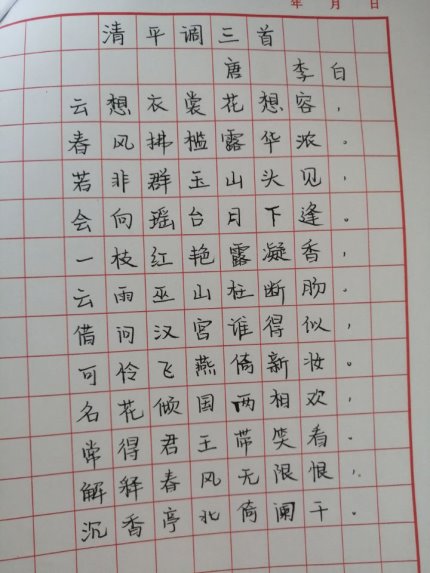 年 月 日
清平调三首
唐 李白
云想衣裳花想容，
春风拂槛露华浓。
若非群玉山头见，
会向瑶台月下逢。
一枝红艳露凝香，
云雨巫山枉断肠。
借问汉宫谁得似，
可怜飞燕倚新妆。
名花倾国两相欢，
常得君王带笑看。
解释春风无限恨，
沉香亭北倚阑干。